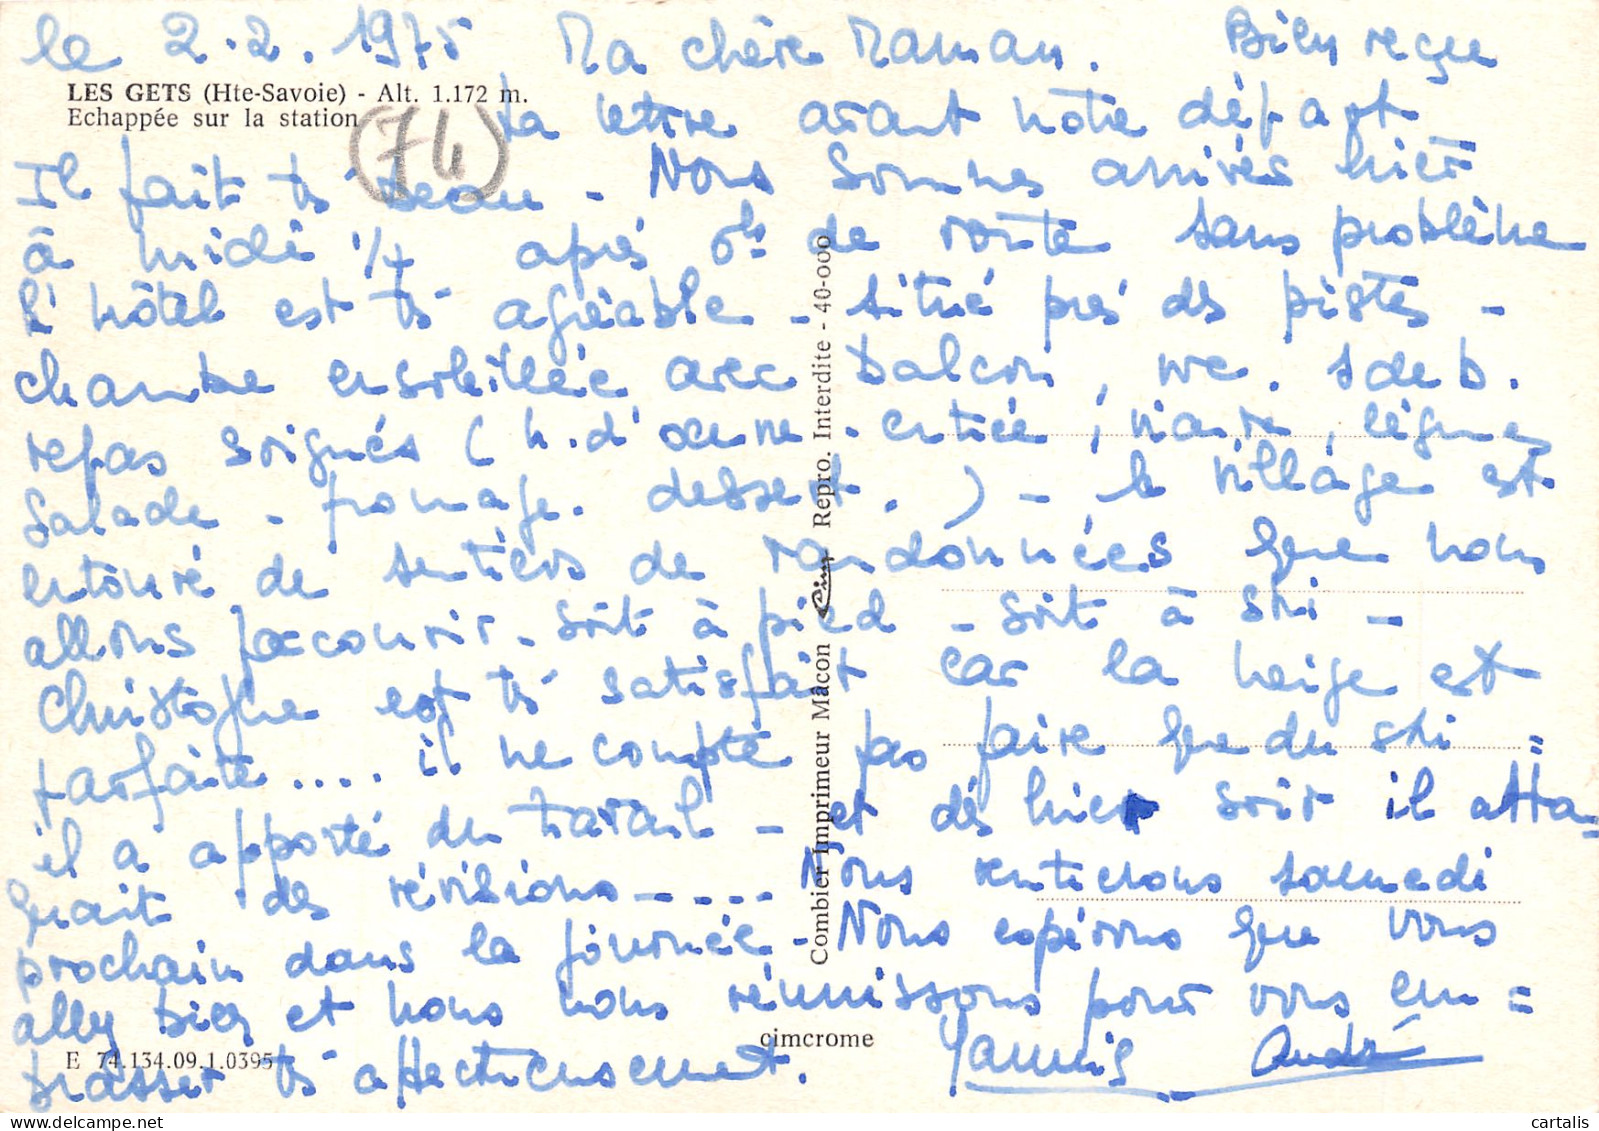 le 2.2.1975 Ma chère Maman. Bien reçue
LES GETS (Hte-Savoie) - Alt. 1.172 m.
Echappée sur la station
(74)
ta lettre avant notre départ
Il fait ts beau - Nous sommes arrivés hier
à midi 1/4 après 6h de route sans problème
L'hôtel est ts agréable - situé près des pistes -
chambre ensoleillée avec balcon, wc. s de b.
repas soignés (h. d'oeuvre - entrée, viande, légumes
salade - fromage. dessert.) - le village est
entouré de sentiers de randonnées que nous
allons parcourir - soit à pied - soit à ski -
Christophe est ts satisfait car la neige est
parfaite .... il ne compte pas faire que du ski =
il a apporté du travail - et dès hier soir il atta-
quait des révisions - .... Nous rentrerons samedi
prochain dans la journée - Nous espérons que vous
allez bien et nous nous réunissons pour vous em=
brasser ts affectueusement. Yannis André
Combier Imprimeur Mâcon Cim Repro. Interdite - 40-000
cimcrome
E 74.134.09.1.0395
cartalis